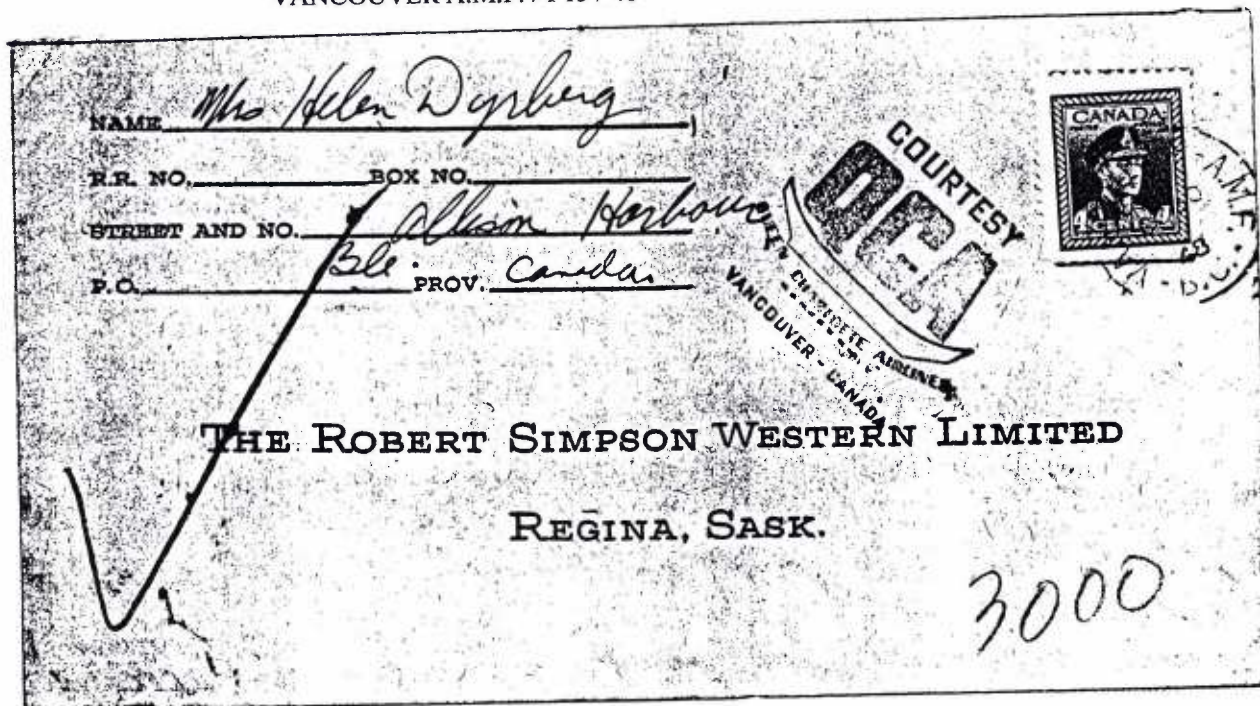 VANCOUVER A.M.F.
NAME Mrs Helen Dyrberg
R.R. NO. BOX NO.
STREET AND NO. Allison Harbour
P.O. PROV. Canada
COURTESY
QCA
CHARLOTTE AIRLINES
VANCOUVER - CANADA
CANADA
A.M.F.
THE ROBERT SIMPSON WESTERN LIMITED
REGINA, SASK.
3000